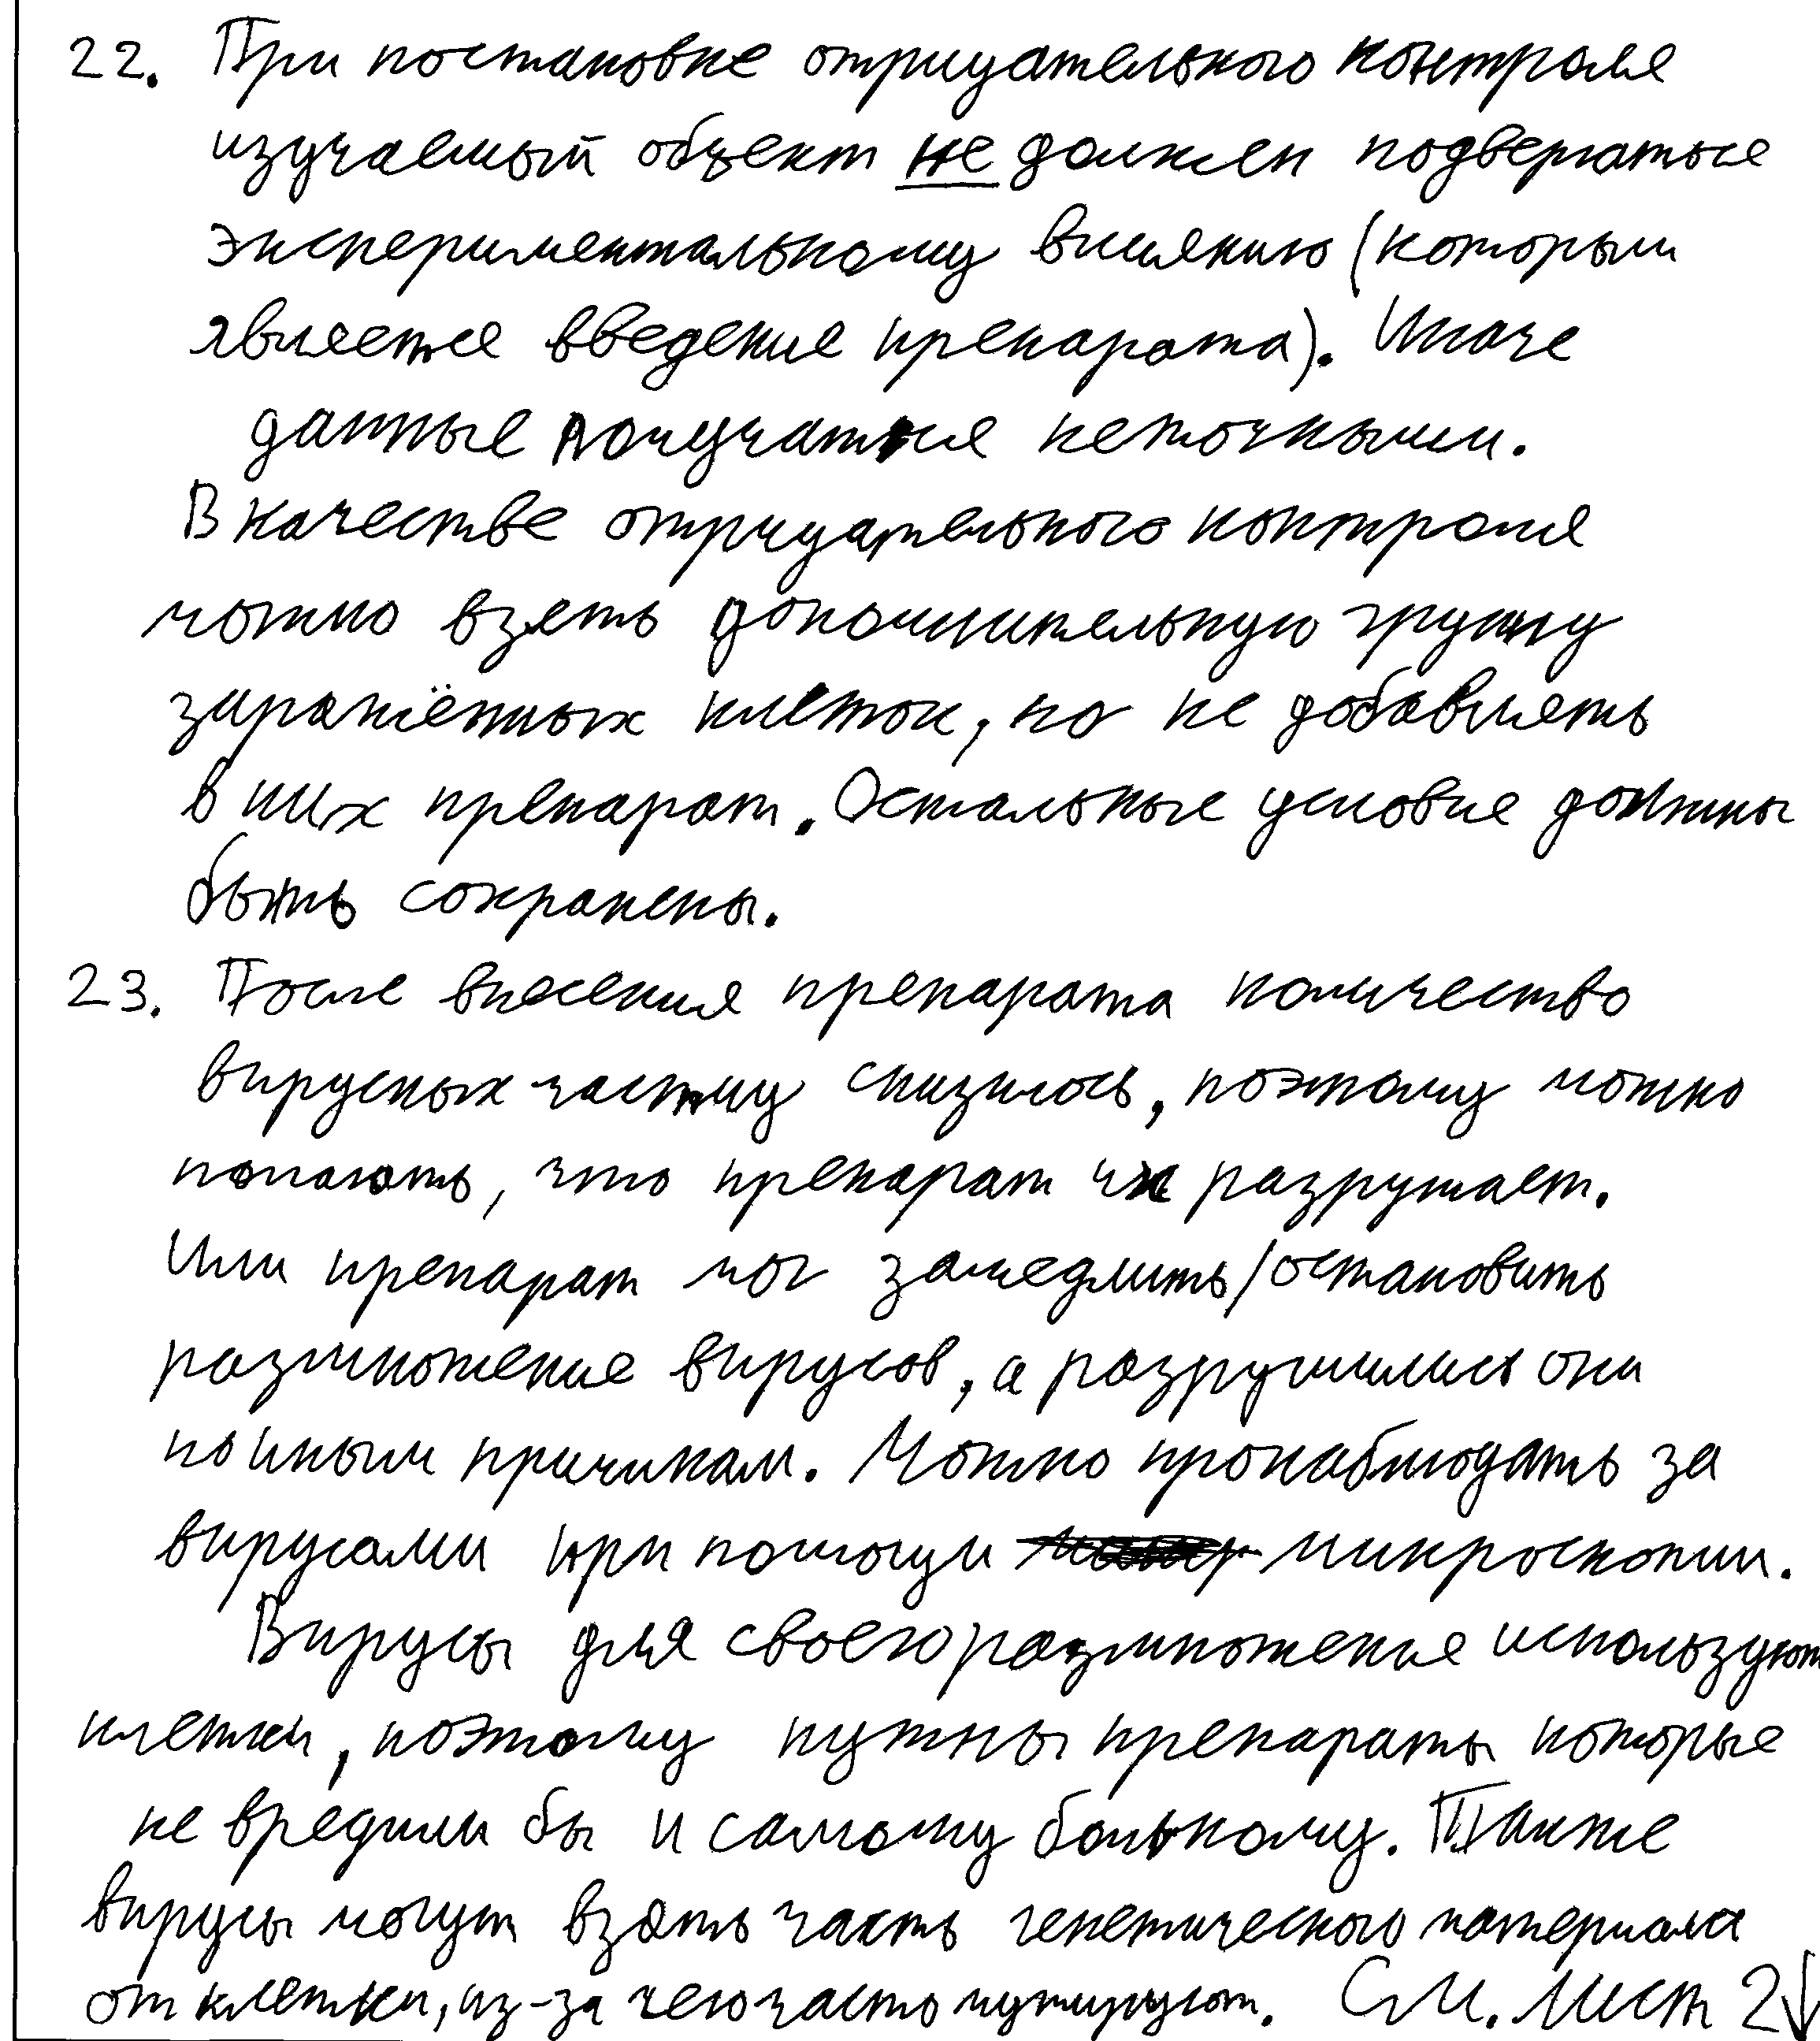 22. При постановке отрицательного контроля
изучаемый объект не должен подвергаться
экспериментальному влиянию (которым
является введение препарата). Иначе
данные получатся неточными.
В качестве отрицательного контроля
можно взять дополнительную группу
заражённых клеток, но не добавлять
в них препарат. Остальные условия должны
быть сохранены.
23. После внесения препарата количество
вирусных частиц снизилось, поэтому можно
полагать, что препарат их разрушает.
Или препарат мог замедлить/остановить
размножение вирусов, а разрушились они
по иным причинам. Можно пронаблюдать за
вирусами при помощи микроскопии.
Вирусы для своего размножения используют
клетки, поэтому нужны препараты которые
не вредили бы и самому больному. Также
вирусы могут взять часть генетического материала
от клетки, из-за чего часто мутируют. См. лист 2↓